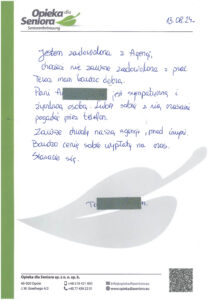 Opieka dla Seniora
Seniorenbetreuung
13.08.24.
Jestem zadowolona z Agencji,
chociaż nie zawsze zadowolona z prac
Teraz mam bardzo dobrą.
Pani A jest sympatyczną i
życzliwą osobą. Lubię sobie z nią czasami
pogadać przez telefon.
Zawsze chwalę naszą agencję przed innymi.
Bardzo cenię sobie wypłaty na czas.
Staracie się.
Te
Opieka dla Seniora sp. z o. o. sp. k.
45-920 Opole
info@opiekadlaseniora.eu
www.opiekadlaseniora.eu